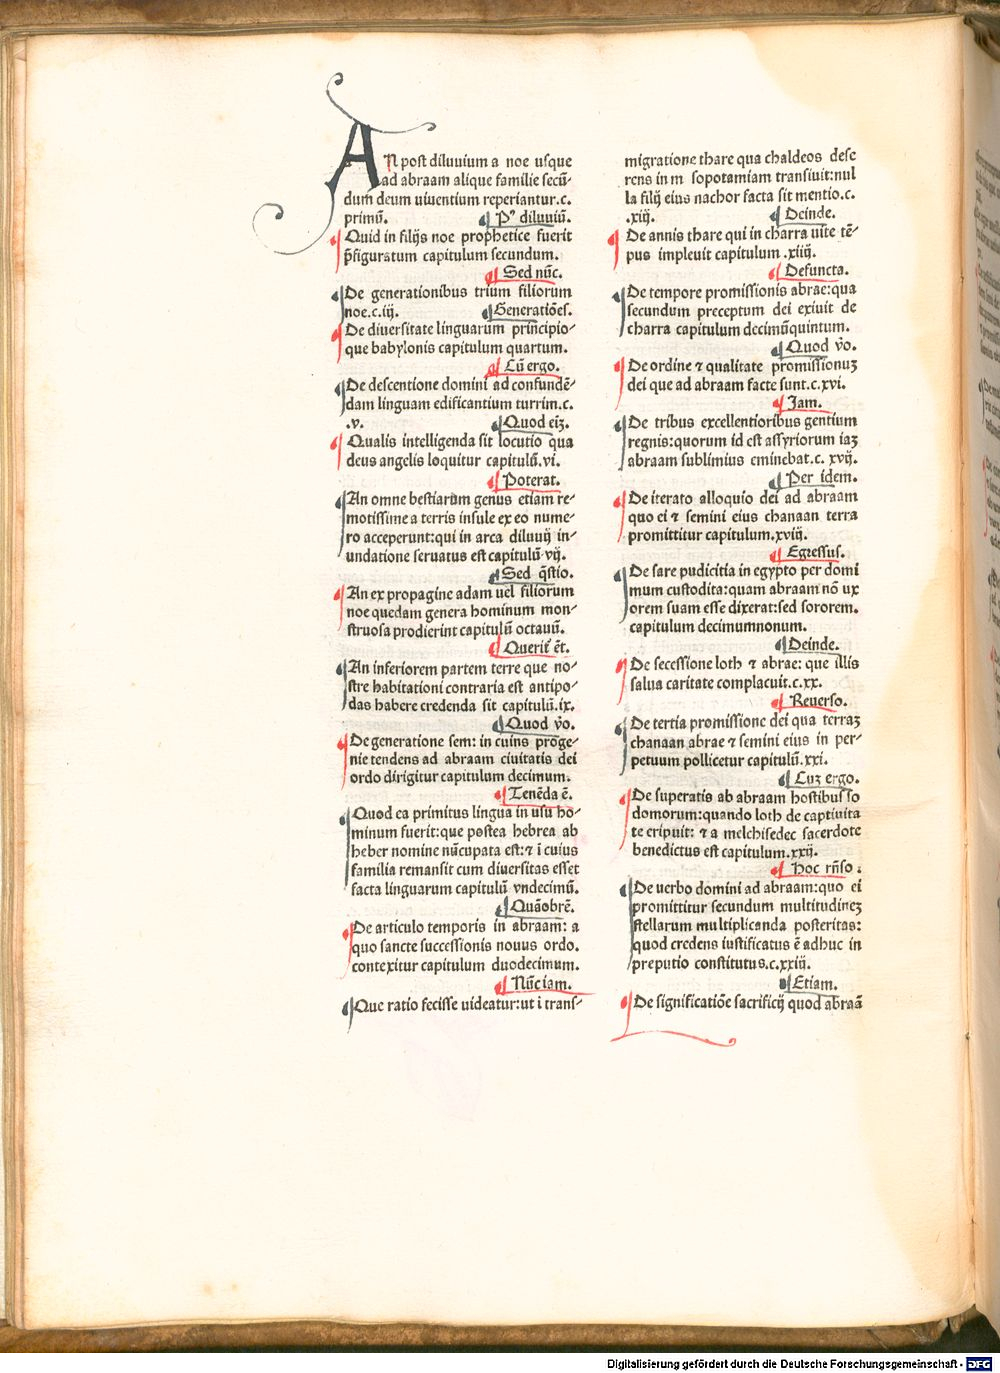 AN post diluuium a noe usque
ad abraam alique familie secū-
dum deum uiuentium reperiantur.c.
primū. P⁹ diluuiū.
Quid in filijs noe prophetice fuerit
p̄figuratum capitulum secundum.
Sed nūc.
De generationibus trium filiorum
noe.c.iij. Generatiōes.
De diuersitate linguarum principio-
que babylonis capitulum quartum.
Cū ergo.
De descentione domini ad confundē-
dam linguam edificantium turrim.c.
.v. Quod eiz.
Qualis intelligenda sit locutio qua
deus angelis loquitur capitulū.vi.
Poterat.
An omne bestiarum genus etiam re-
motissime a terris insule ex eo nume-
ro acceperunt:qui in arca diluuij in-
undatione seruatus est capitulū vij.
Sed q̄stio.
An ex propagine adam uel filiorum
noe quedam genera hominum mon-
struosa prodierint capitulū octauū.
Querit̄ ēt.
An inferiorem partem terre que no-
stre habitationi contraria est antipo-
das habere credenda sit capitulū.ix.
Quod v̄o.
De generatione sem: in cuius proge-
nie tendens ad abraam ciuitatis dei
ordo dirigitur capitulum decimum.
Tenēda ē.
Quod ea primitus lingua in usu ho-
minum fuerit:que postea hebrea ab
heber nomine nūcupata est:⁊ ī cuius
familia remansit cum diuersitas esset
facta linguarum capitulū vndecimū.
Quāobrē.
De articulo temporis in abraam: a
quo sancte successionis nouus ordo.
contexitur capitulum duodecimum.
Nūc iam.
Que ratio fecisse uideatur:ut ī trans-
migratione thare qua chaldeos dese
rens in m sopotamiam transiuit:nul
la filij eius nachor facta sit mentio.c.
.xiij. Deinde.
De annis thare qui in charra uite tē-
pus impleuit capitulum .xiiij.
Defuncta.
De tempore promissionis abrae:qua
secundum preceptum dei exiuit de
charra capitulum decimūquintum.
Quod v̄o.
De ordine ⁊ qualitate promissionuꝫ
dei que ad abraam facte sunt.c.xvi.
Jam.
De tribus excellentioribus gentium
regnis:quorum id est assyriorum iaꝫ
abraam sublimius eminebat.c. xvij.
Per idem.
De iterato alloquio dei ad abraam
quo ei ⁊ semini eius chanaan terra
promittitur capitulum.xviij.
Egressus.
De sare pudicitia in egypto per domi
mum custodita:quam abraam nō ux
orem suam esse dixerat:sed sororem.
capitulum decimumnonum.
Deinde.
De secessione loth ⁊ abrae: que illis
salua caritate complacuit.c.xx.
Reuerso.
De tertia promissione dei qua terraꝫ
chanaan abrae ⁊ semini eius in per-
petuum pollicetur capitulū.xxi.
Cuꝫ ergo.
De superatis ab abraam hostibus so
domorum:quando loth de captiuita
te eripuit: ⁊ a melchisedec sacerdote
benedictus est capitulum.xxij.
Hoc rn̄so.
De uerbo domini ad abraam:quo ei
promittitur secundum multitudineꝫ
stellarum multiplicanda posteritas:
quod credens iustificatus ē adhuc in
preputio constitutus.c.xxiij.
Etiam.
De significatiōe sacrificij quod abraā
Digitalisierung gefördert durch die Deutsche Forschungsgemeinschaft - DFG